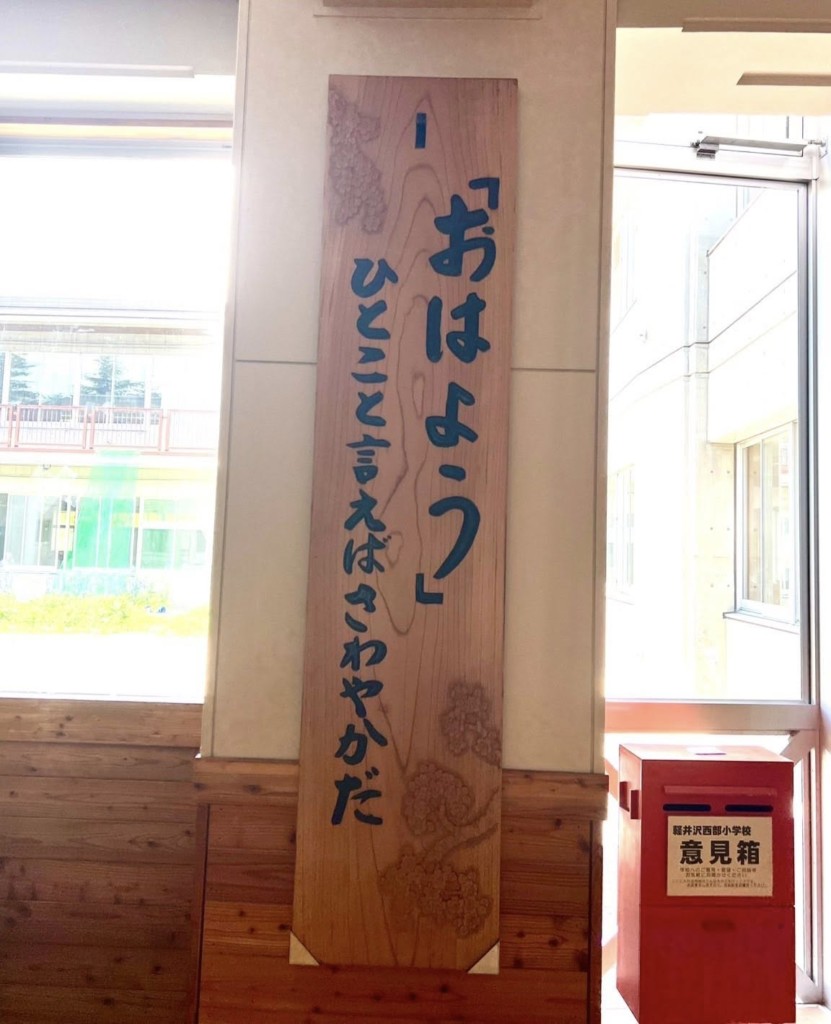 一
「おはよう」
ひとこと言えばさわやかだ
軽井沢西部小学校
意見箱